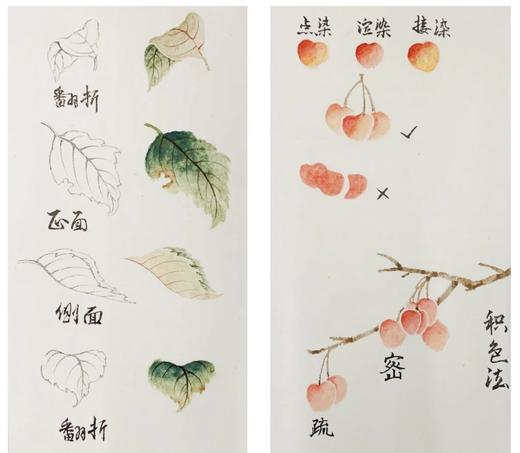 翻折
正面
侧面
翻折
点染 渲染 接染
✓
×
积色法
密
疏